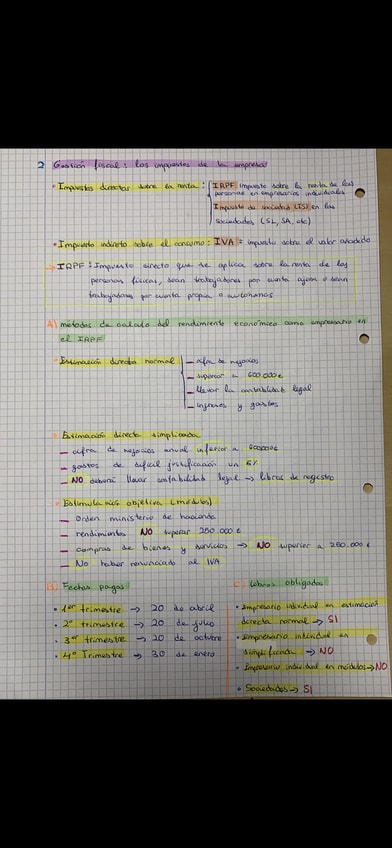 2 Gestión fiscal: los impuestos de la empresa
• Impuestos directos sobre la renta: IRPF impuesto sobre la renta de las
personas en empresarios individuales
Impuesto de sociedades (IS) en las
sociedades (SL, SA, etc)
• Impuesto indirecto sobre el consumo: IVA = impuesto sobre el valor añadido
IRPF: Impuesto directo que se aplica sobre la renta de las
personas físicas, sean trabajadores por cuenta ajena o sean
trabajadores por cuenta propia o autónomas
A) métodos de calculo del rendimiento económico como empresario en
el IRPF
• Estimación directa normal
— cifra de negocios
— superior a 600.000€
— llevar la contabilidad legal
— ingresos y gastos
• Estimación directa simplificada
— cifra de negocios anual inferior a 600000€
— gastos de dificil justificación un 5%
— NO deberá llevar contabilidad legal → libros de registro
• objetiva (modulos)
— Orden ministerio de hacienda
— rendimientos NO superar 250.000€
— compras de bienes y servicios → NO superior a 250.000€
— No haber renunciado al IVA
B) Fechas pagos
• 1er trimestre → 20 de abril
• 2º trimestre → 20 de julio
• 3er trimestre → 20 de octubre
• 4º Trimestre → 30 de enero
C) libros obligados
• Empresario individual en estimación
directa normal → SI
• Empresario individual en
simplificada → NO
• Empresario individual en modulos → NO
• Sociedades → SI